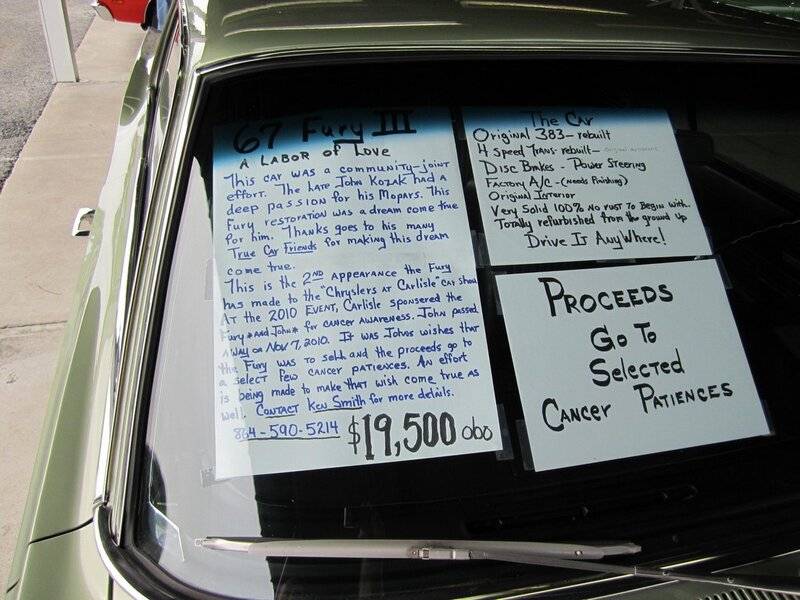 67 Fury III
A LABOR of LOVE
This CAR WAS A community-joint
effort. The late John Kozak had a
deep passion for his Mopars. This
Fury restoration was a dream come true
for him. Thanks goes to his many
True Car Friends for making this dream
come true.
This is the 2ND Appearance the Fury
has made to the "Chryslers at Carlisle" car show
At the 2010 Event, Carlisle sponsered the
Fury *and John* for cancer awareness. John passed
away on Nov 7, 2010. It was Johns wishes that
the Fury was to sell and the proceeds go to
a select few cancer patiences. An effort
is being made to make that wish come true as
well. Contact Ken Smith for more details.
864-590-5214 $19,500 obo
The Car
Original 383- rebuilt
4 Speed Trans- rebuilt-
Disc Brakes - Power Steering
Factory A/C - (needs finishing)
Original Interior
Very Solid 100% no rust to begin with.
Totally refurbished from the ground up
Drive It AnyWhere!
PROCEEDS
Go To
Selected
Cancer Patiences